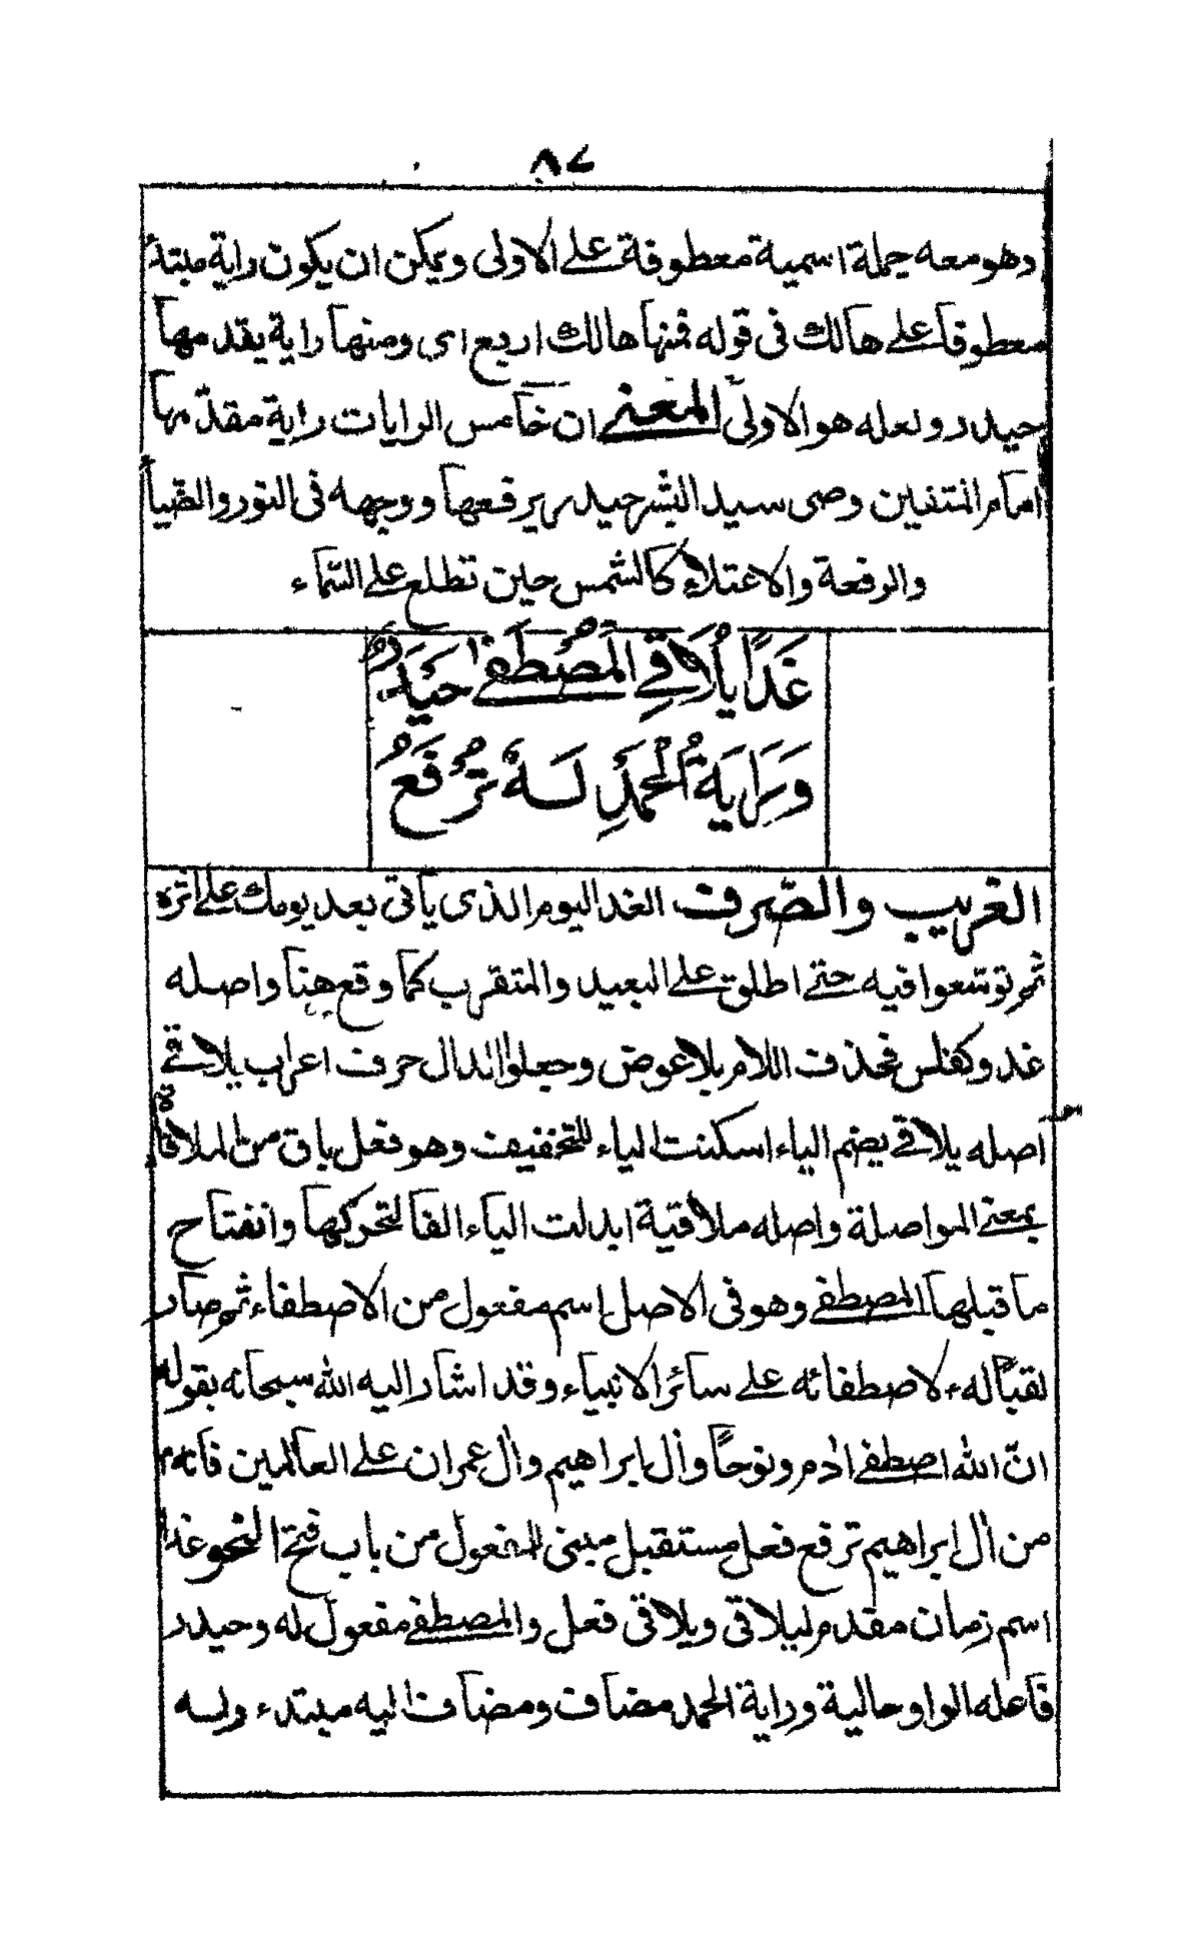 ٨٧
وهو معه جملة اسمية معطوفة على الاولى ويمكن ان يكون راية مبتدأ
معطوفا على هالك فى قوله فمنها هالك اربع اى ومنها راية يقدمها
حيدر ولعله هو الاولى المعنى ان خامس الرايات راية مقدّمها
امام المتقين وصى سيد البشر حيدر يرفعها ووجهه فى النور والضيا
والرفعة والاعتلاء كالشمس حين تطلع على السّماء
غَدًا يُلَاقِي المُصْطَفٰى حَيْدَرُ
وَرَايَةُ الْحَمْدِ لَهُ تُرْفَعُ
الغريب والصّرف الغد اليوم الذى يأتى بعد يومك على اثره
ثم توسّعوا فيه حتى اطلق على البعيد والمتقرب كما وقع هنا واصله
غدو كفلس فحذف اللام بلا عوض وجعلوا الدال حرف اعراب يلاقى
اصله يلاقى بضم الياء اسكنت الياء للتخفيف وهو فعل باق من الملاقاة
بمعنى المواصلة واصله ملاقية ابدلت الياء الفا لتحركها وانفتاح
ما قبلها المصطفى وهو فى الاصل اسم مفعول من الاصطفاء ثم صار
لقبًا له لاصطفائه على سائر الانبياء وقد اشار اليه الله سبحانه بقوله
انّ الله اصطفى اٰدم ونوحًا واٰل ابراهيم واٰل عمران على العالمين فانه
من اٰل ابراهيم ترفع فعل مستقبل مبنى للمفعول من باب فتح النحو غدا
اسم زمان مقدم ليلاقى ويلاقى فعل والمصطفى مفعول له وحيدر
فاعله الواو حالية وراية الحمد مضاف ومضاف اليه مبتدء وله